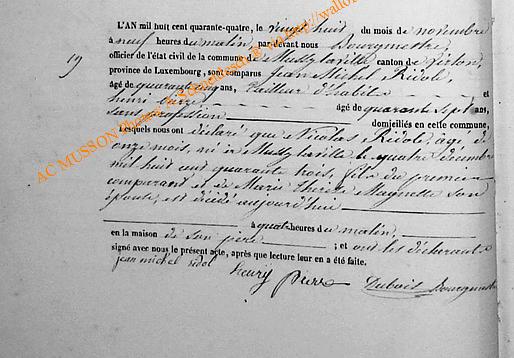 L'AN mil huit cent quarante-quatre, le vingt huit du mois de novembre
à neuf heures du matin, par devant nous Bourgmestre
officier de l'état civil de la commune de Mussy la ville canton de Virton,
19
province de Luxembourg, sont comparus Jean Michel Ridole,
âgé de quarante cinq ans, tailleur d'habits et
henri âgé de quarante sept ans,
sans profession domiciliés en cette commune,
Lesquels nous ont déclaré que Nicolas Ridole, âgé d
onze mois, né à Mussy la ville le quatre décembre
mil huit cent quarante trois, fils du premier
comparant et de Marie Thérèse Magnette son
épouse, est décédé aujourd'hui
à quatre heures du matin,
en la maison de son père ; et ont les déclarants
signé avec nous le présent acte, après que lecture leur en a été faite.
jean michel ridol henry Dubois Bourgmestre
AC MUSSON